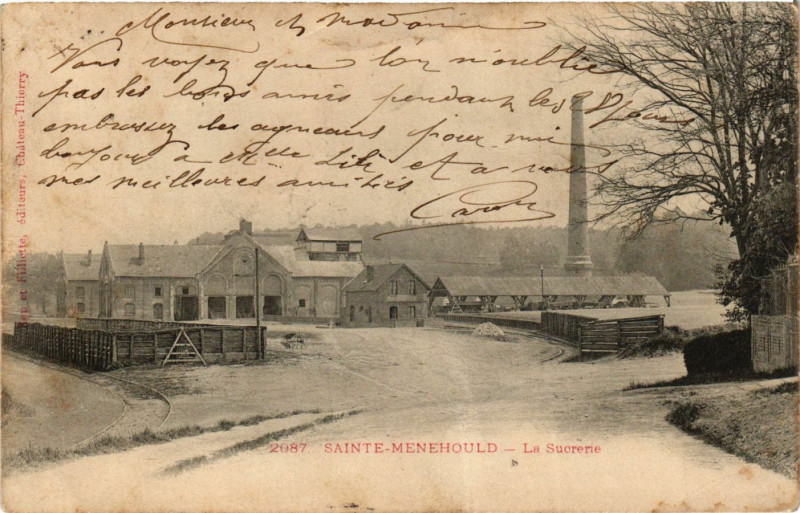 Monsieur et madame
Vous voyez que l'on n'oublie
pas les bons amis pendant les 28 jours
embrassez les agneaux pour moi
bonjour a Lili et a vous
mes meilleures amitiés
Rep et Filliette, éditeurs, Château-Thierry
2087. SAINTE-MENEHOULD — La Sucrerie